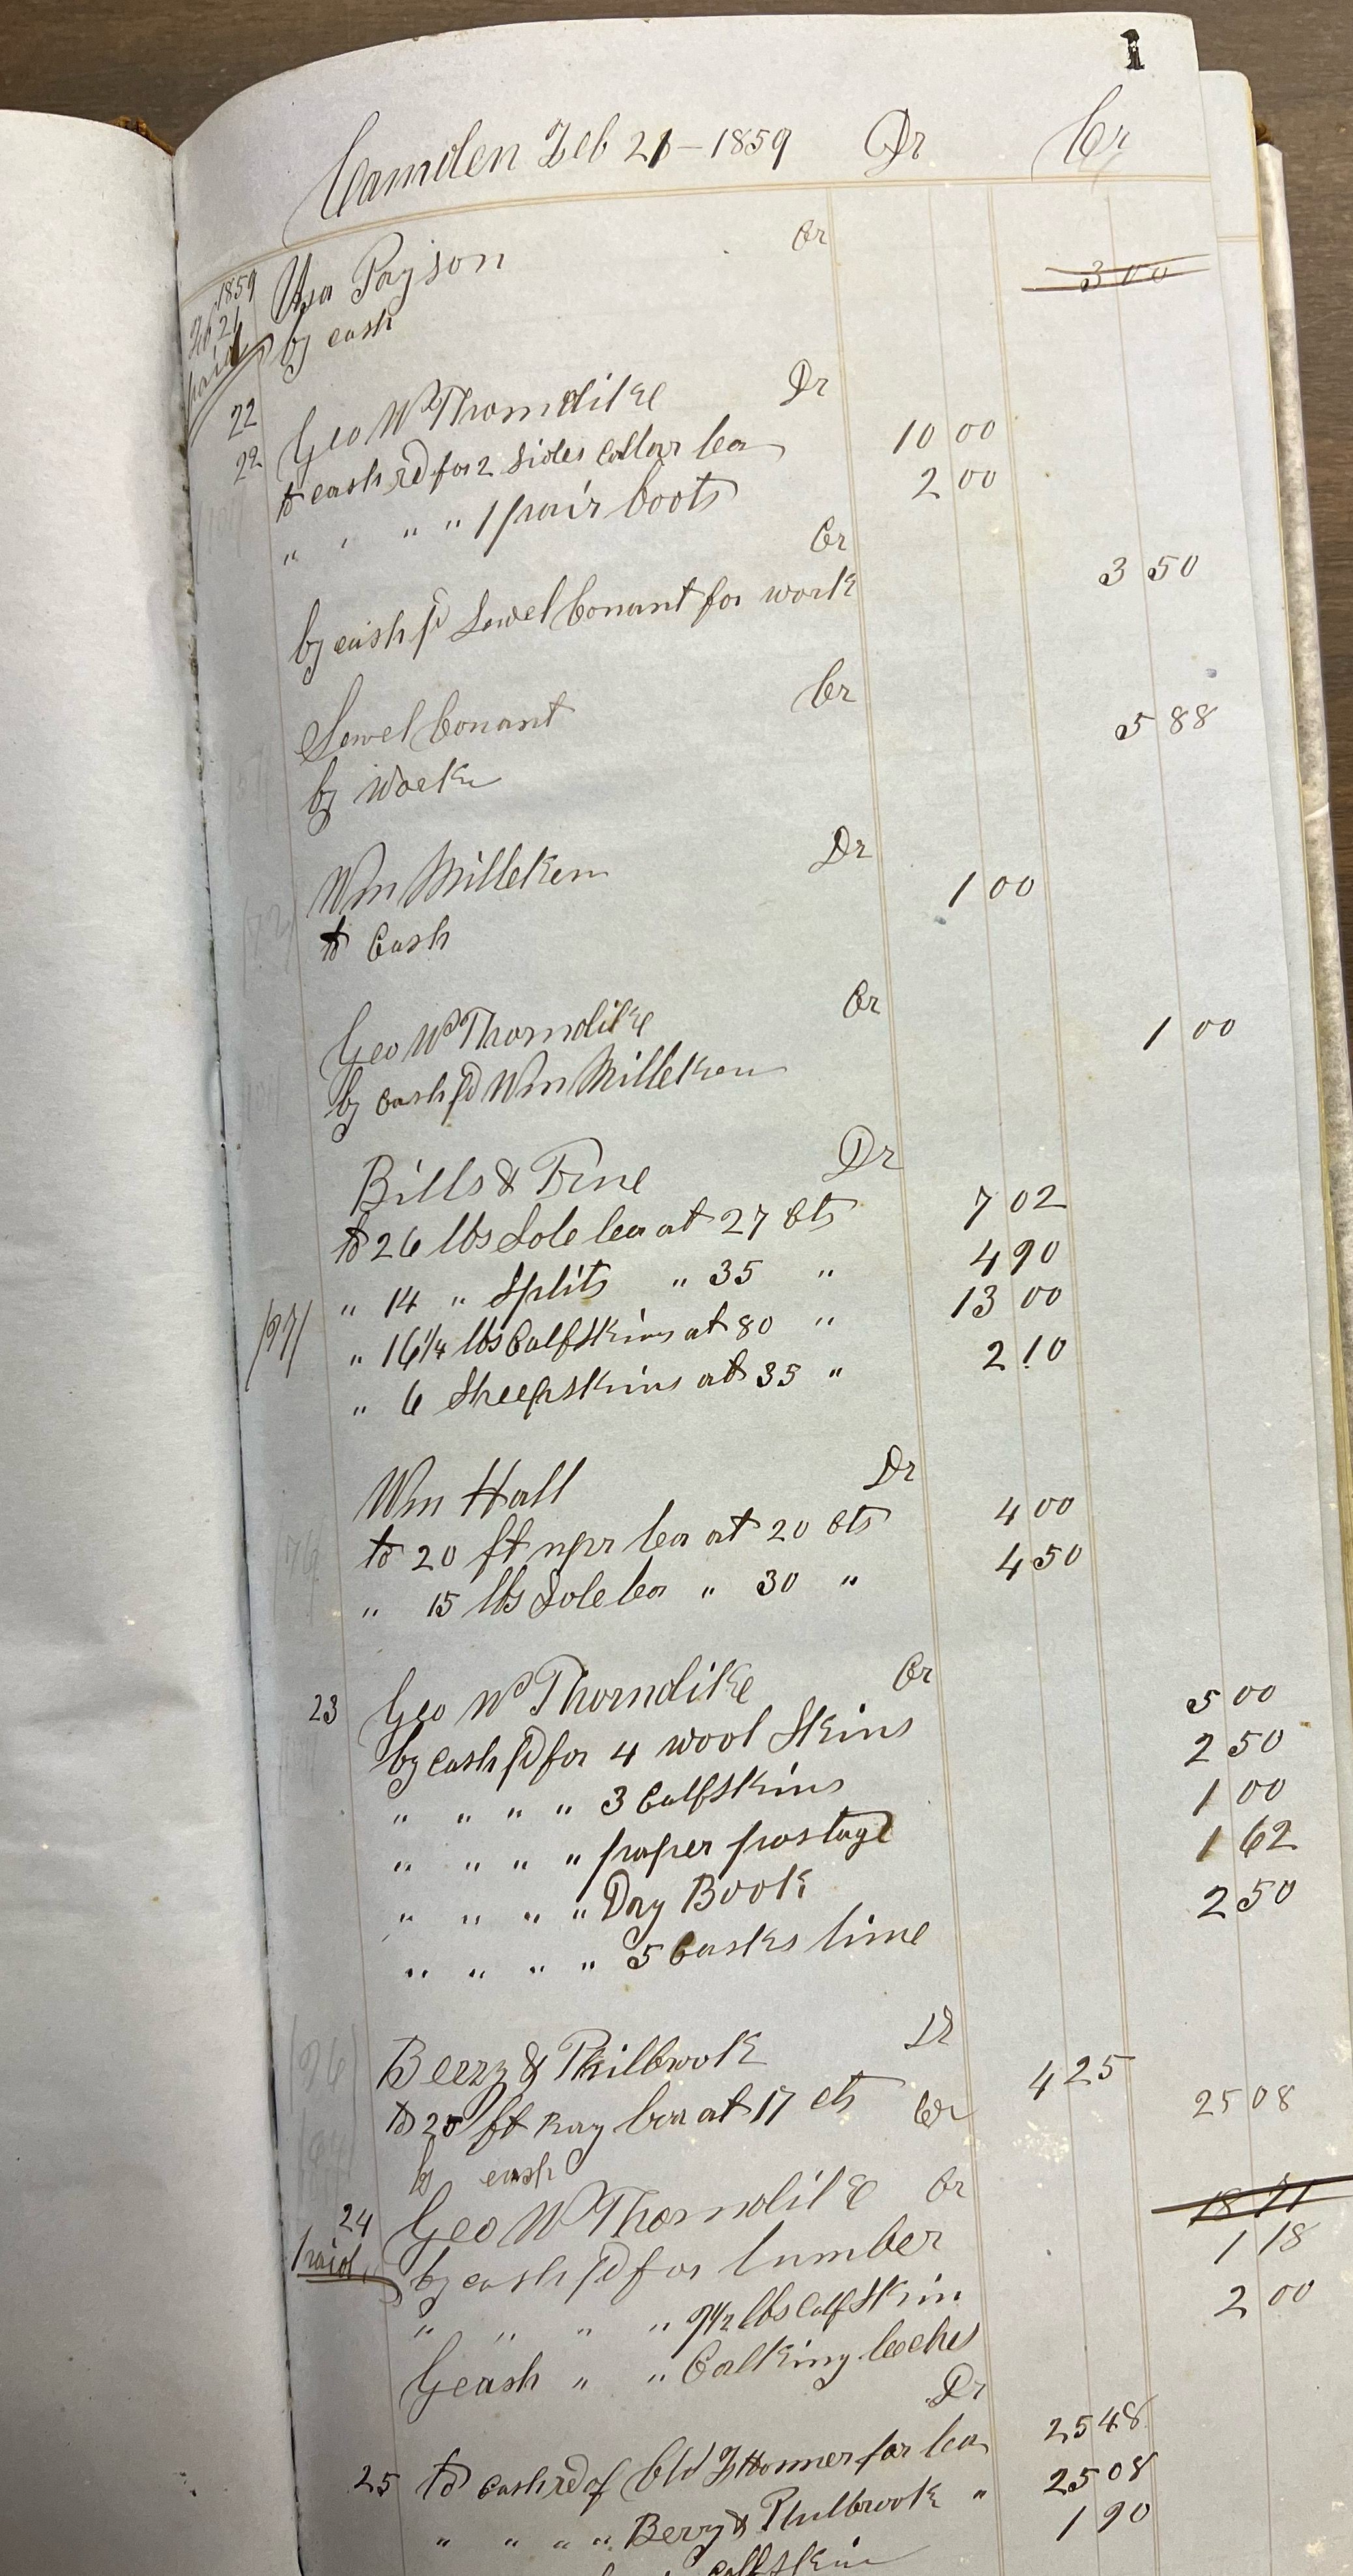 1
Camden Feb 21 - 1859 Dr Cr
1859 Asa Payson Cr 3 00
Feb 21 by cash
paid
22 Geo W Thorndike Dr
22 to cash rd for 2 sides Collar lea 10 00
" " " " 1 pair boots 2 00
Cr
by cash pd Sewel Conant for work 3 50
Sewel Conant Cr
by work 5 88
Wm Milleken Dr
to Cash 1 00
Geo W Thorndike Cr
by Cash pd Wm Milleken 1 00
Bills & Dr
to 26 lbs Sole lea at 27 cts 7 02
" 14 " Splits " 35 " 4 90
" 16 1/4 lbs Calfskins at 80 " 13 00
" 6 Sheepskins at 35 " 2 10
Wm Hall Dr
to 20 ft lea at 20 cts 4 00
" 15 lbs Sole lea " 30 " 4 50
23 Geo W Thorndike Cr
by Cash pd for 4 wool Skins 5 00
" " " " 3 Calfskins 2 50
" " " " paper postage 1 00
" " " " Day Book 1 62
" " " " 5 Casks lime 2 50
Berry & Philbrook Dr
to 25 ft lea at 17 cts 4 25
by cash Cr 25 08
24 Geo W Thorndike Cr
paid by cash pd for lumber 18 71
" " " " 9 1/2 lbs Calf Skin 1 18
" " Calking leeches 2 00
Dr
25 to Cash rd of for lea 25 48
" " " " Berry & Philbrook " 25 08
Calfskin 1 90